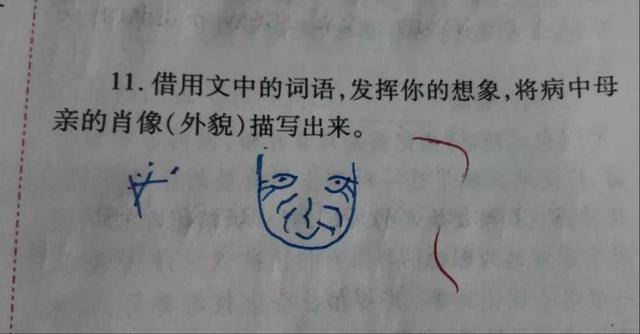 11.借用文中的词语,发挥你的想象,将病中母
亲的肖像(外貌)描写出来。